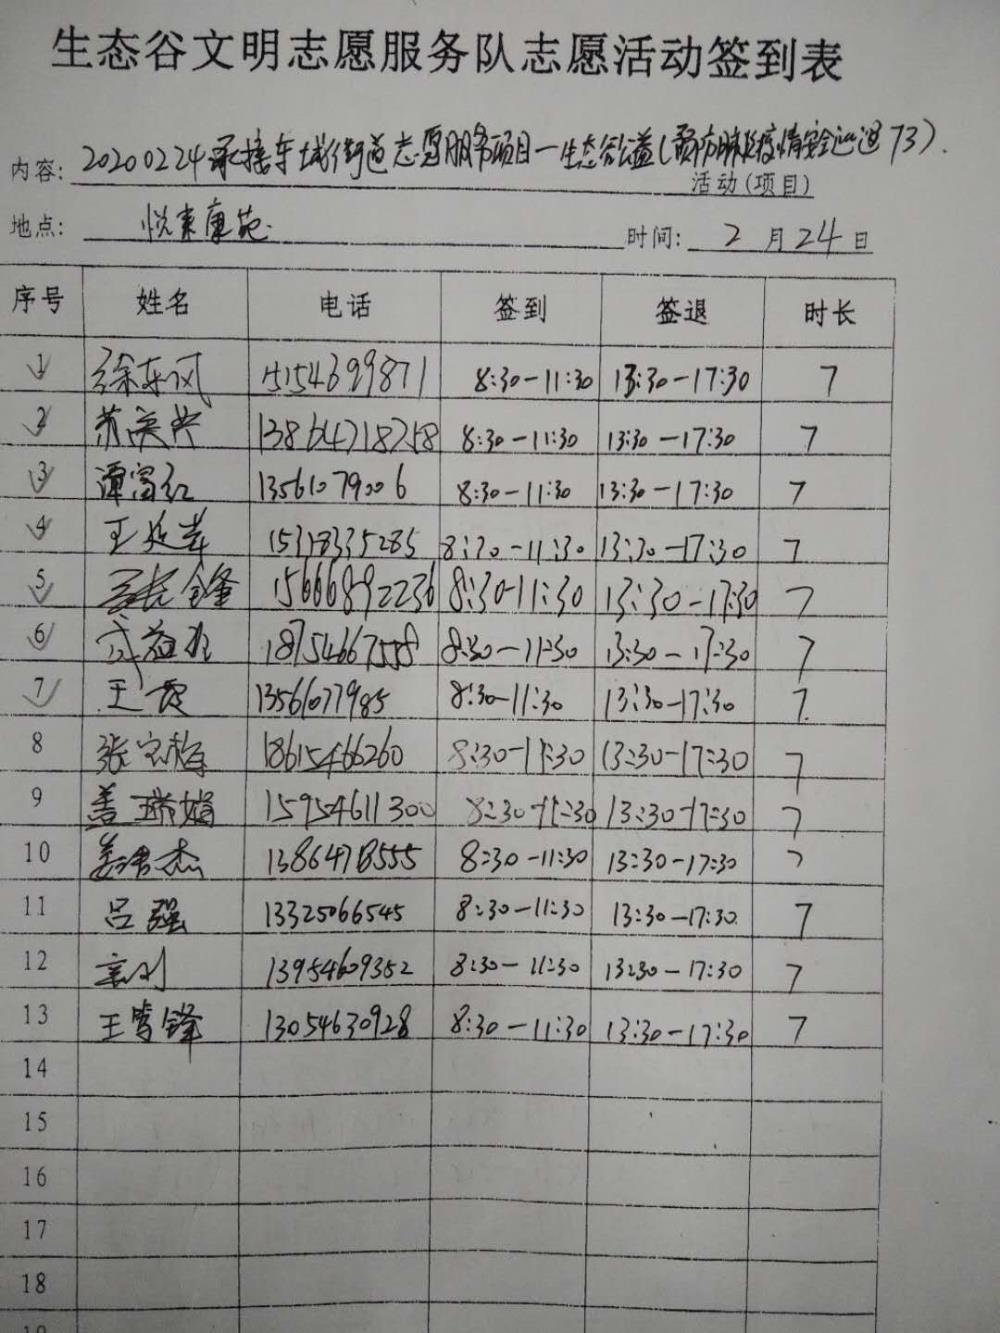 生态谷文明志愿服务队志愿活动签到表
内容: 20200224承接东城街道志愿服务项目一生态谷公益(预防肺炎疫情安全巡逻73).
活动(项目)
地点: 悦来康苑. 时间: 2 月 24 日
序号 姓名 电话 签到 签退 时长
1 徐东风 15154699871 8:30-11:30 13:30-17:30 7
2 13864718258 8:30-11:30 13:30-17:30 7
3 谭富红 13561079006 8:30-11:30 13:30-17:30 7
4 王延苹 15318335285 8:30-11:30 13:30-17:30 7
5 15666892236 8:30-11:30 13:30-17:30 7
6 18754667558 8:30-11:30 13:30-17:30 7
7 王霞 13561077985 8:30-11:30 13:30-17:30 7
8 张宝梅 18615466260 8:30-11:30 13:30-17:30 7
9 盖瑞娟 15954611300 8:30-11:30 13:30-17:30 7
10 8:30-11:30 13:30-17:30 7
11 吕强 13325066545 8:30-11:30 13:30-17:30 7
12 13954609352 8:30-11:30 13:30-17:30 7
13 13054630928 8:30-11:30 13:30-17:30 7
14
15
16
17
18
19